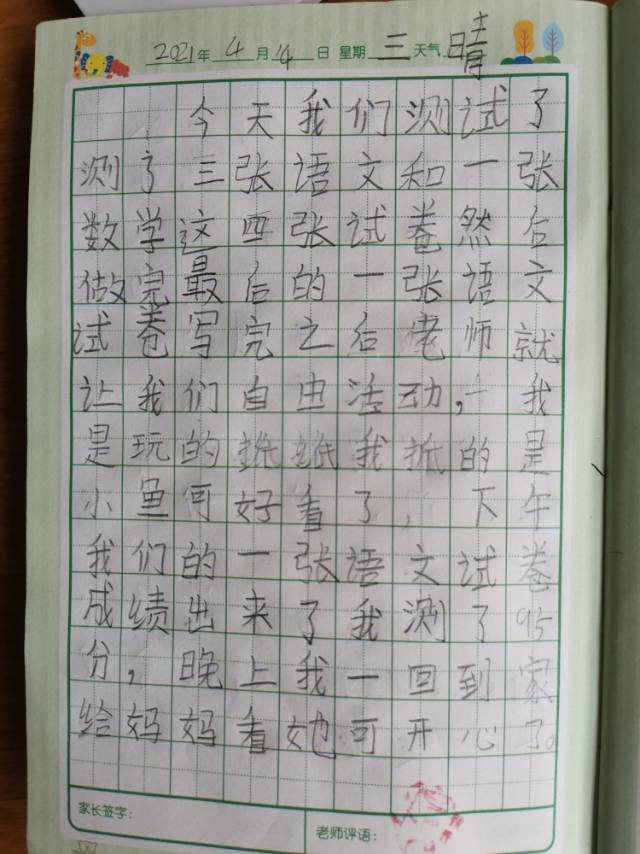 2021年4月14日 星期三 天气晴
今天我们测试了
测了三张语文和一张
数学这四张试卷然后
做完最后的一张语文
试卷写完之后老师就
让我们自由活动，我
是玩的折纸我折的是
小鱼可好看了，下午
我们的一张语文试卷
成绩出来了我测了95
分，晚上我一回到家
给妈妈看她可开心了。
家长签字：
老师评语：